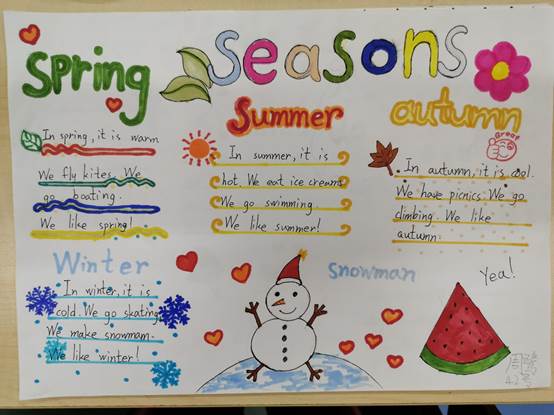 seasons
Spring
In spring, it is warm
We fly kites. We
go boating.
We like spring!
Summer
In summer, it is
hot. We eat ice creams
We go swimming.
We like summer!
autumn
Great
In autumn, it is cool.
We have picnics. We go
climbing. We like
autumn.
Winter
In winter, it is
cold. We go skating
We make snowmam.
We like winter!
Snowman
Yea!